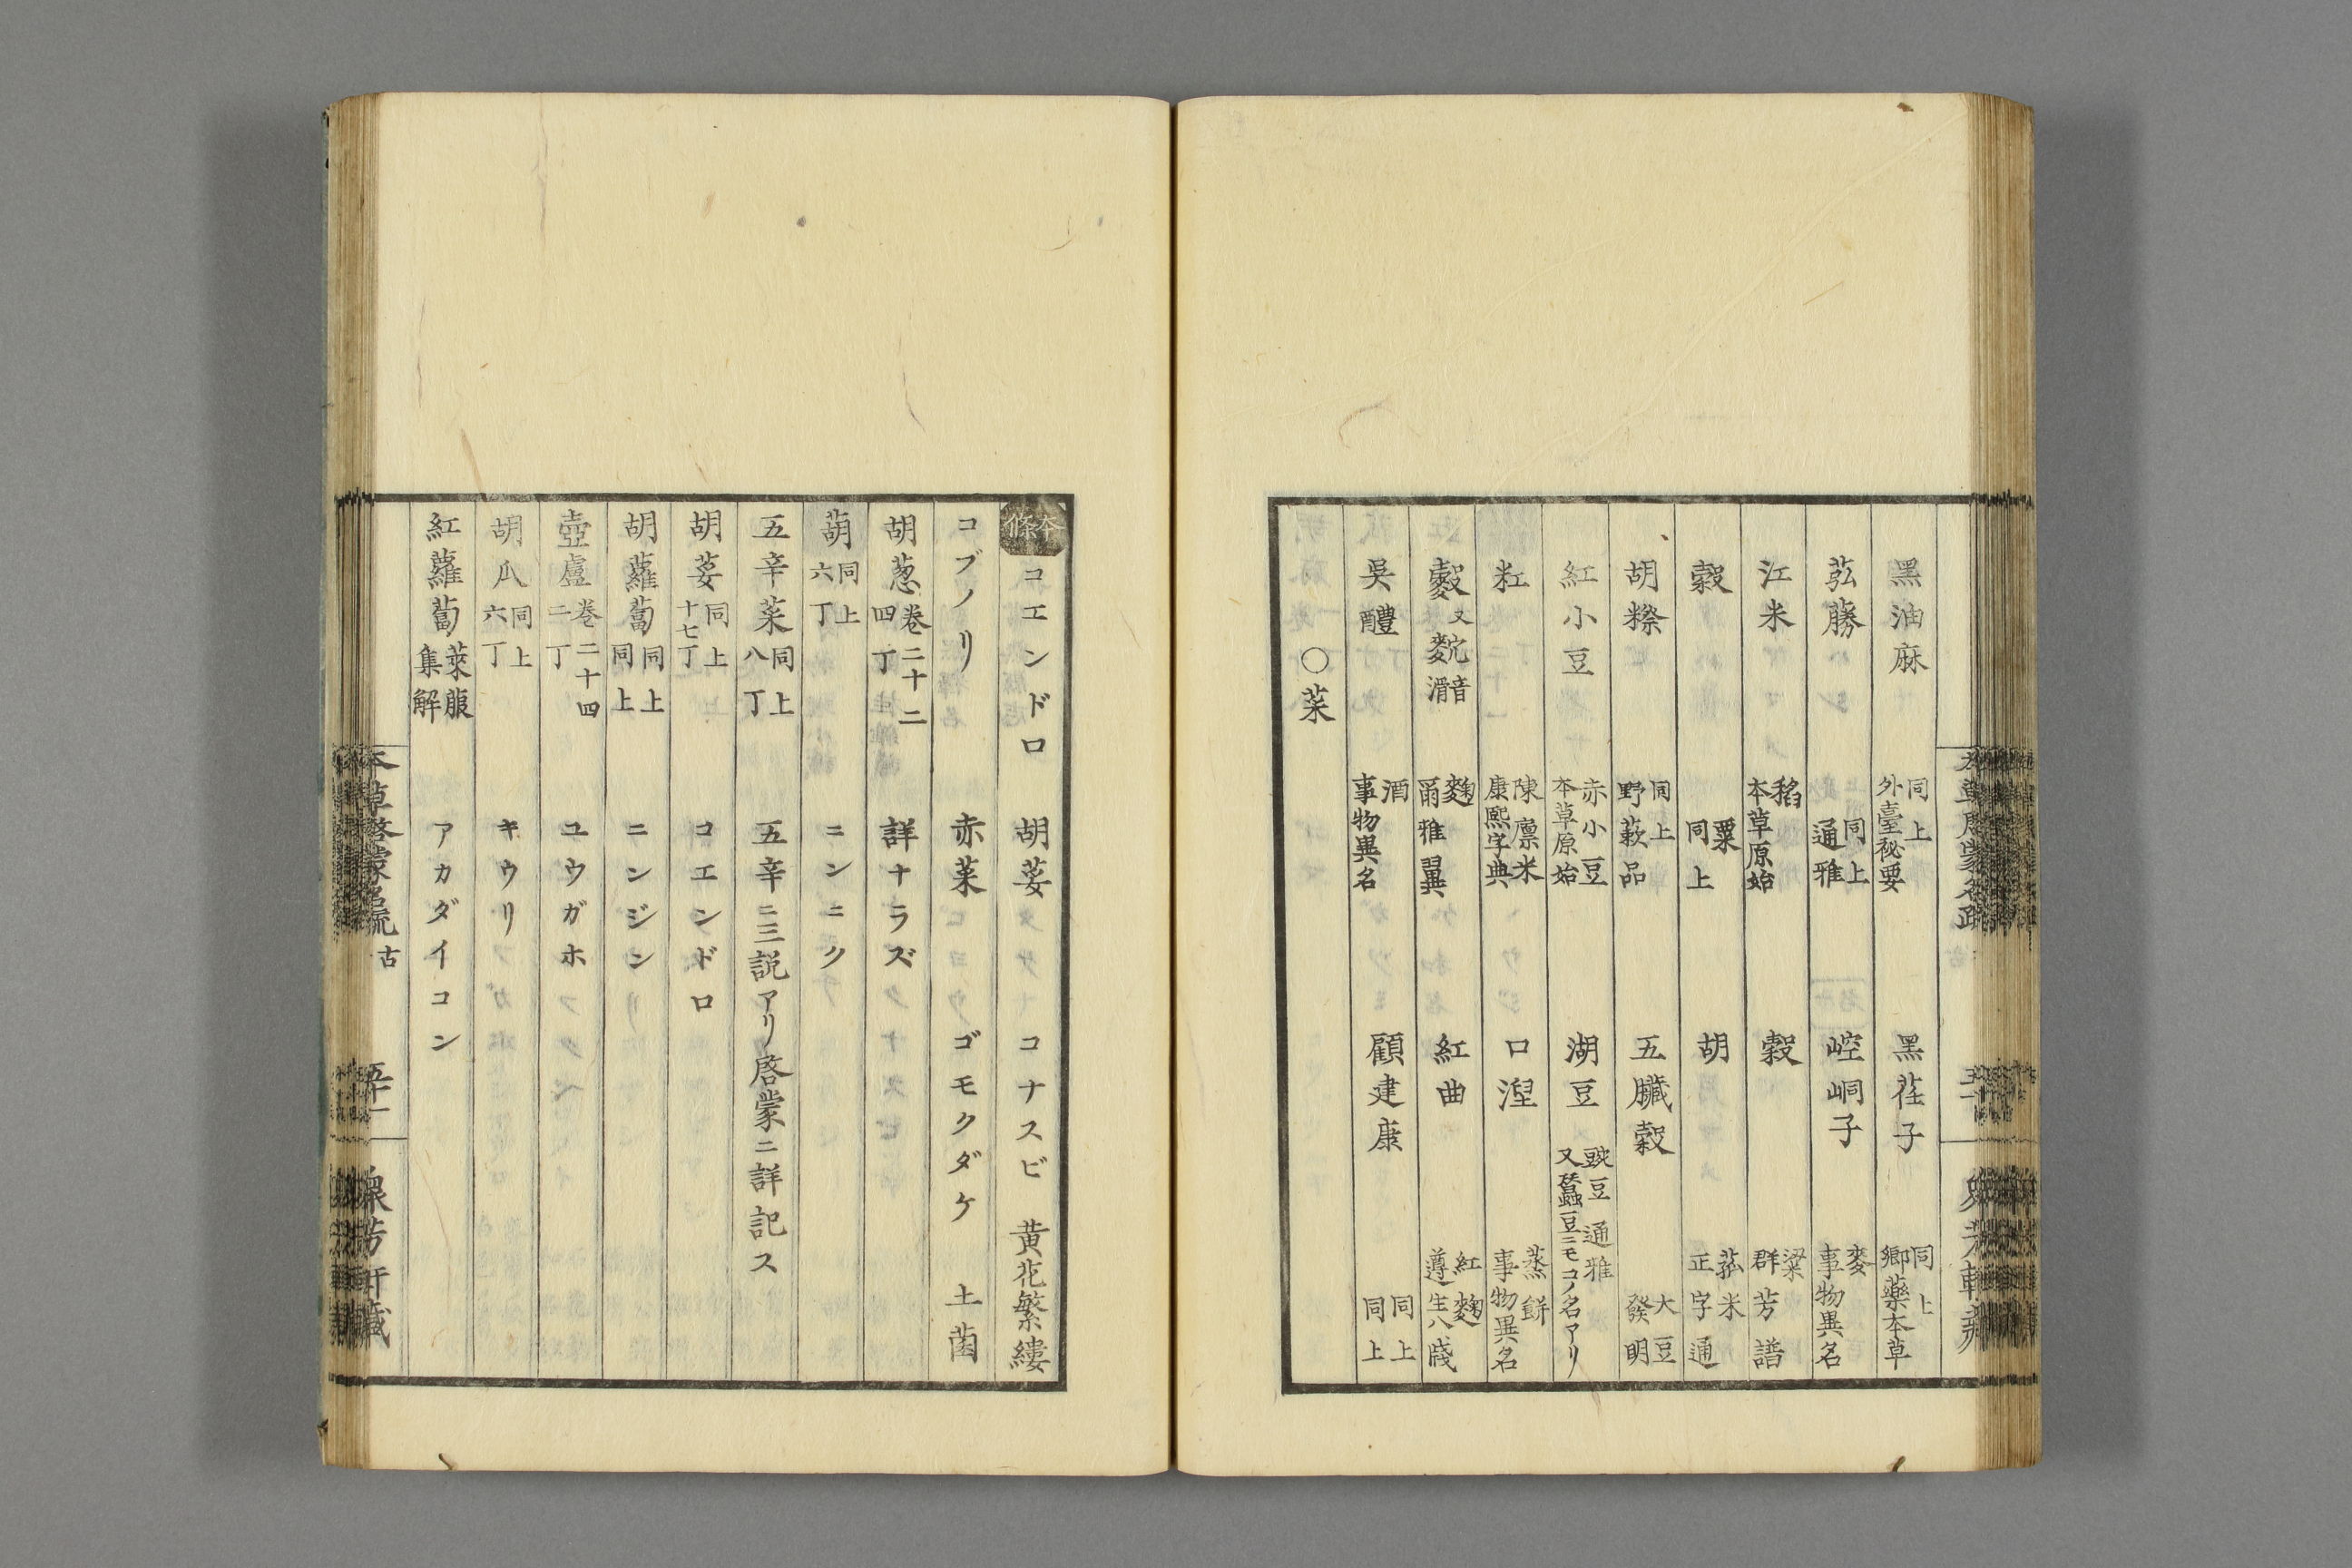 黑油麻 同上 外臺秘要 黑荏子 同上 鄉藥本草
苰藤 同上 通雅 崆峒子 麥 事物異名
江米 稻 本草原始 穀 粱 群芳譜
穀 粟 同上 胡 菰米 正字通
胡糝 同上 野蔌品 五臟穀 大豆 發明
紅小豆 赤小豆 本草原始 湖豆 豌豆 通雅 又蠶豆ニモコノ名アリ
粠 陳廩米 康熙字典 口湼 蒸餅 事物異名
又 音滑 麴 爾雅翼 紅曲 紅麴 遵生八牋
吳醴 酒 事物異名 顧建康 同上 同上
○菜
本條
コエンドロ 胡荽 コナスビ 黃花繁縷
コブノリ 赤菜 ゴモクダケ 土菌
胡葱 卷二十二 四丁 詳ナラズ
葫 同上 六丁 ニンニク
五辛菜 同上 八丁 五辛ニ三説アリ啓蒙ニ詳記ス
胡荽 同上 十七丁 コエンドロ
胡蘿蔔 同上 同上 ニンジン
壺盧 卷二十四 二丁 ユウガホ
胡瓜 同上 六丁 キウリ
紅蘿蔔 萊菔 集解 アカダイコン
本草啓蒙名疏 古 五十一 芳軒藏